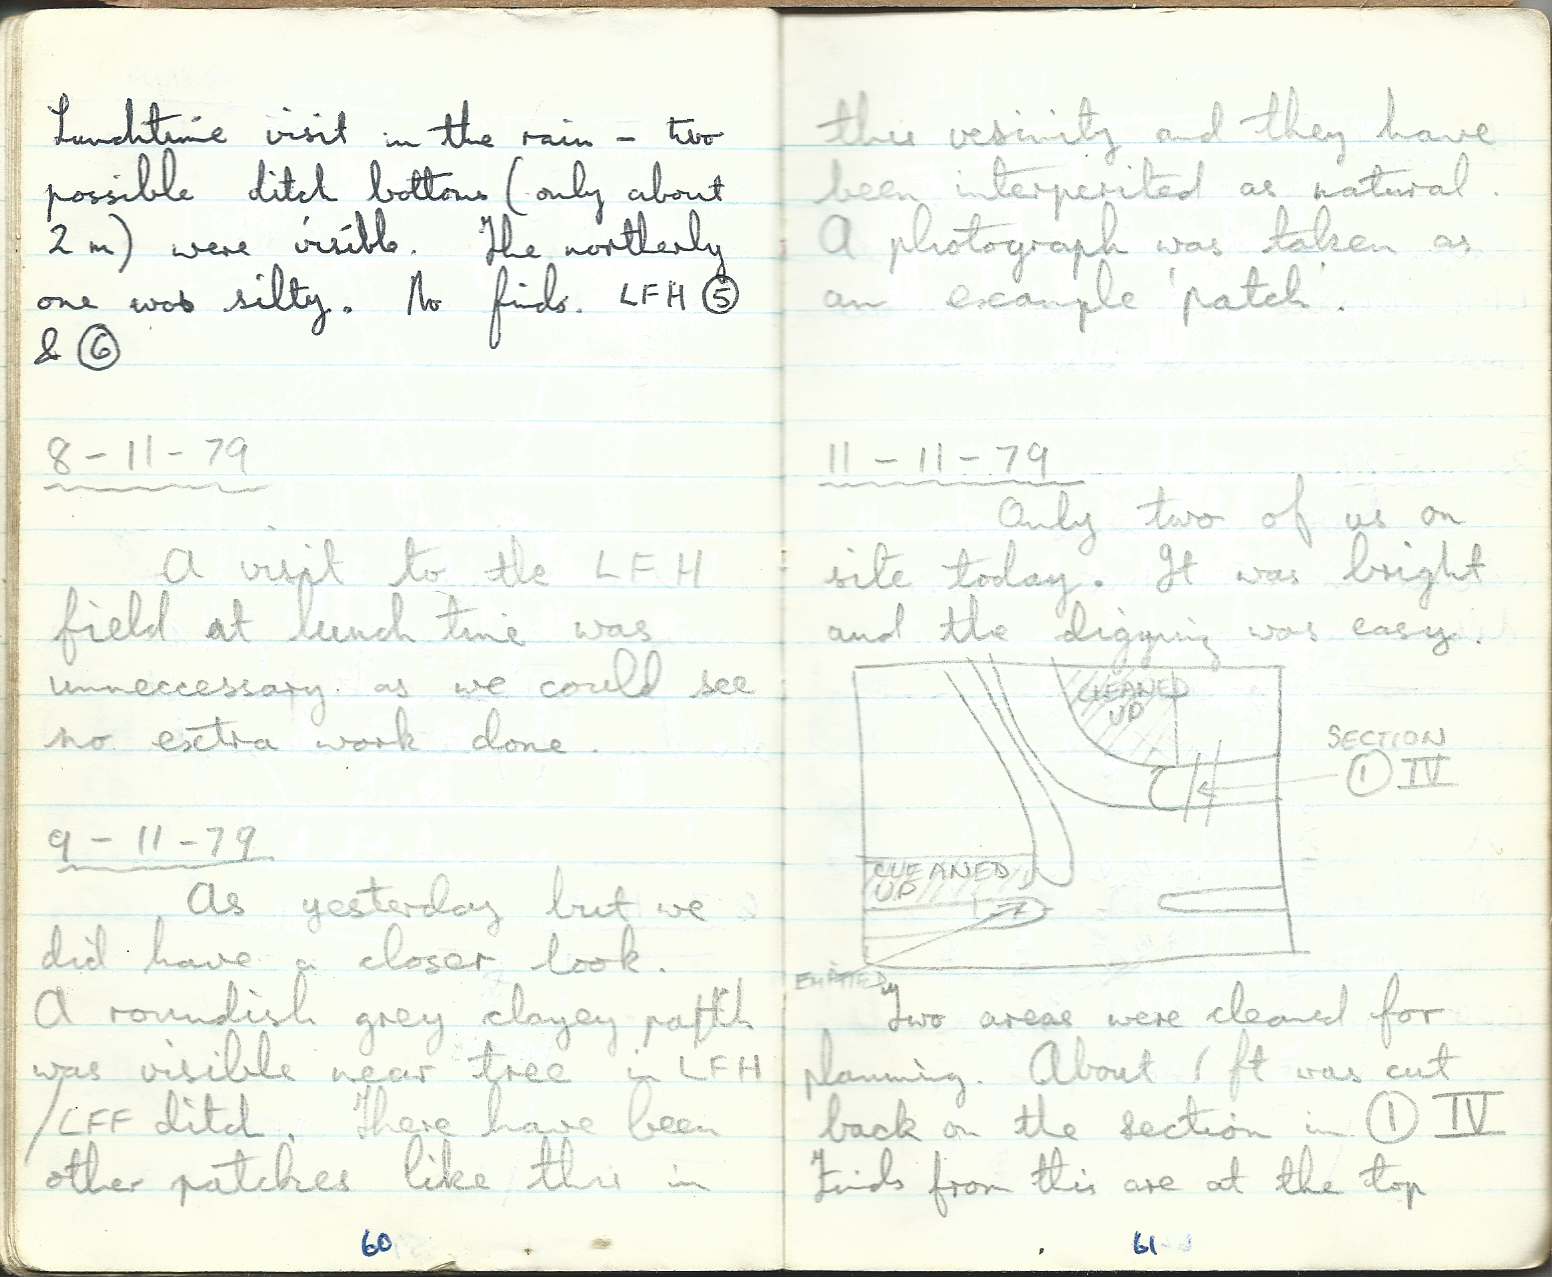 Lunchtime visit in the rain – two
possible ditch bottoms (only about
2 m) were visible. The northerly
one was silty. No finds. LFH ⑤
& ⑥
8 – 11 – 79
A visit to the LFH
field at lunch time was
unneccessary as we could see
no extra work done.
9 – 11 – 79
As yesterday but we
did have a closer look.
A roundish grey clayey patch
was visible near tree in LFH
/LFF ditch. There have been
other patches like this in
60
this vesinity and they have
been interperited as natural.
A photograph was taken as
an example 'patch'.
11 – 11 – 79
Only two of us on
site today. It was bright
and the digging was easy.
CLEANED
UP
SECTION
① IV
CLEANED
UP
EMPTIED
Two areas were cleaned for
planning. About 1 ft was cut
back on the section in ① IV
Finds from this are at the top
61